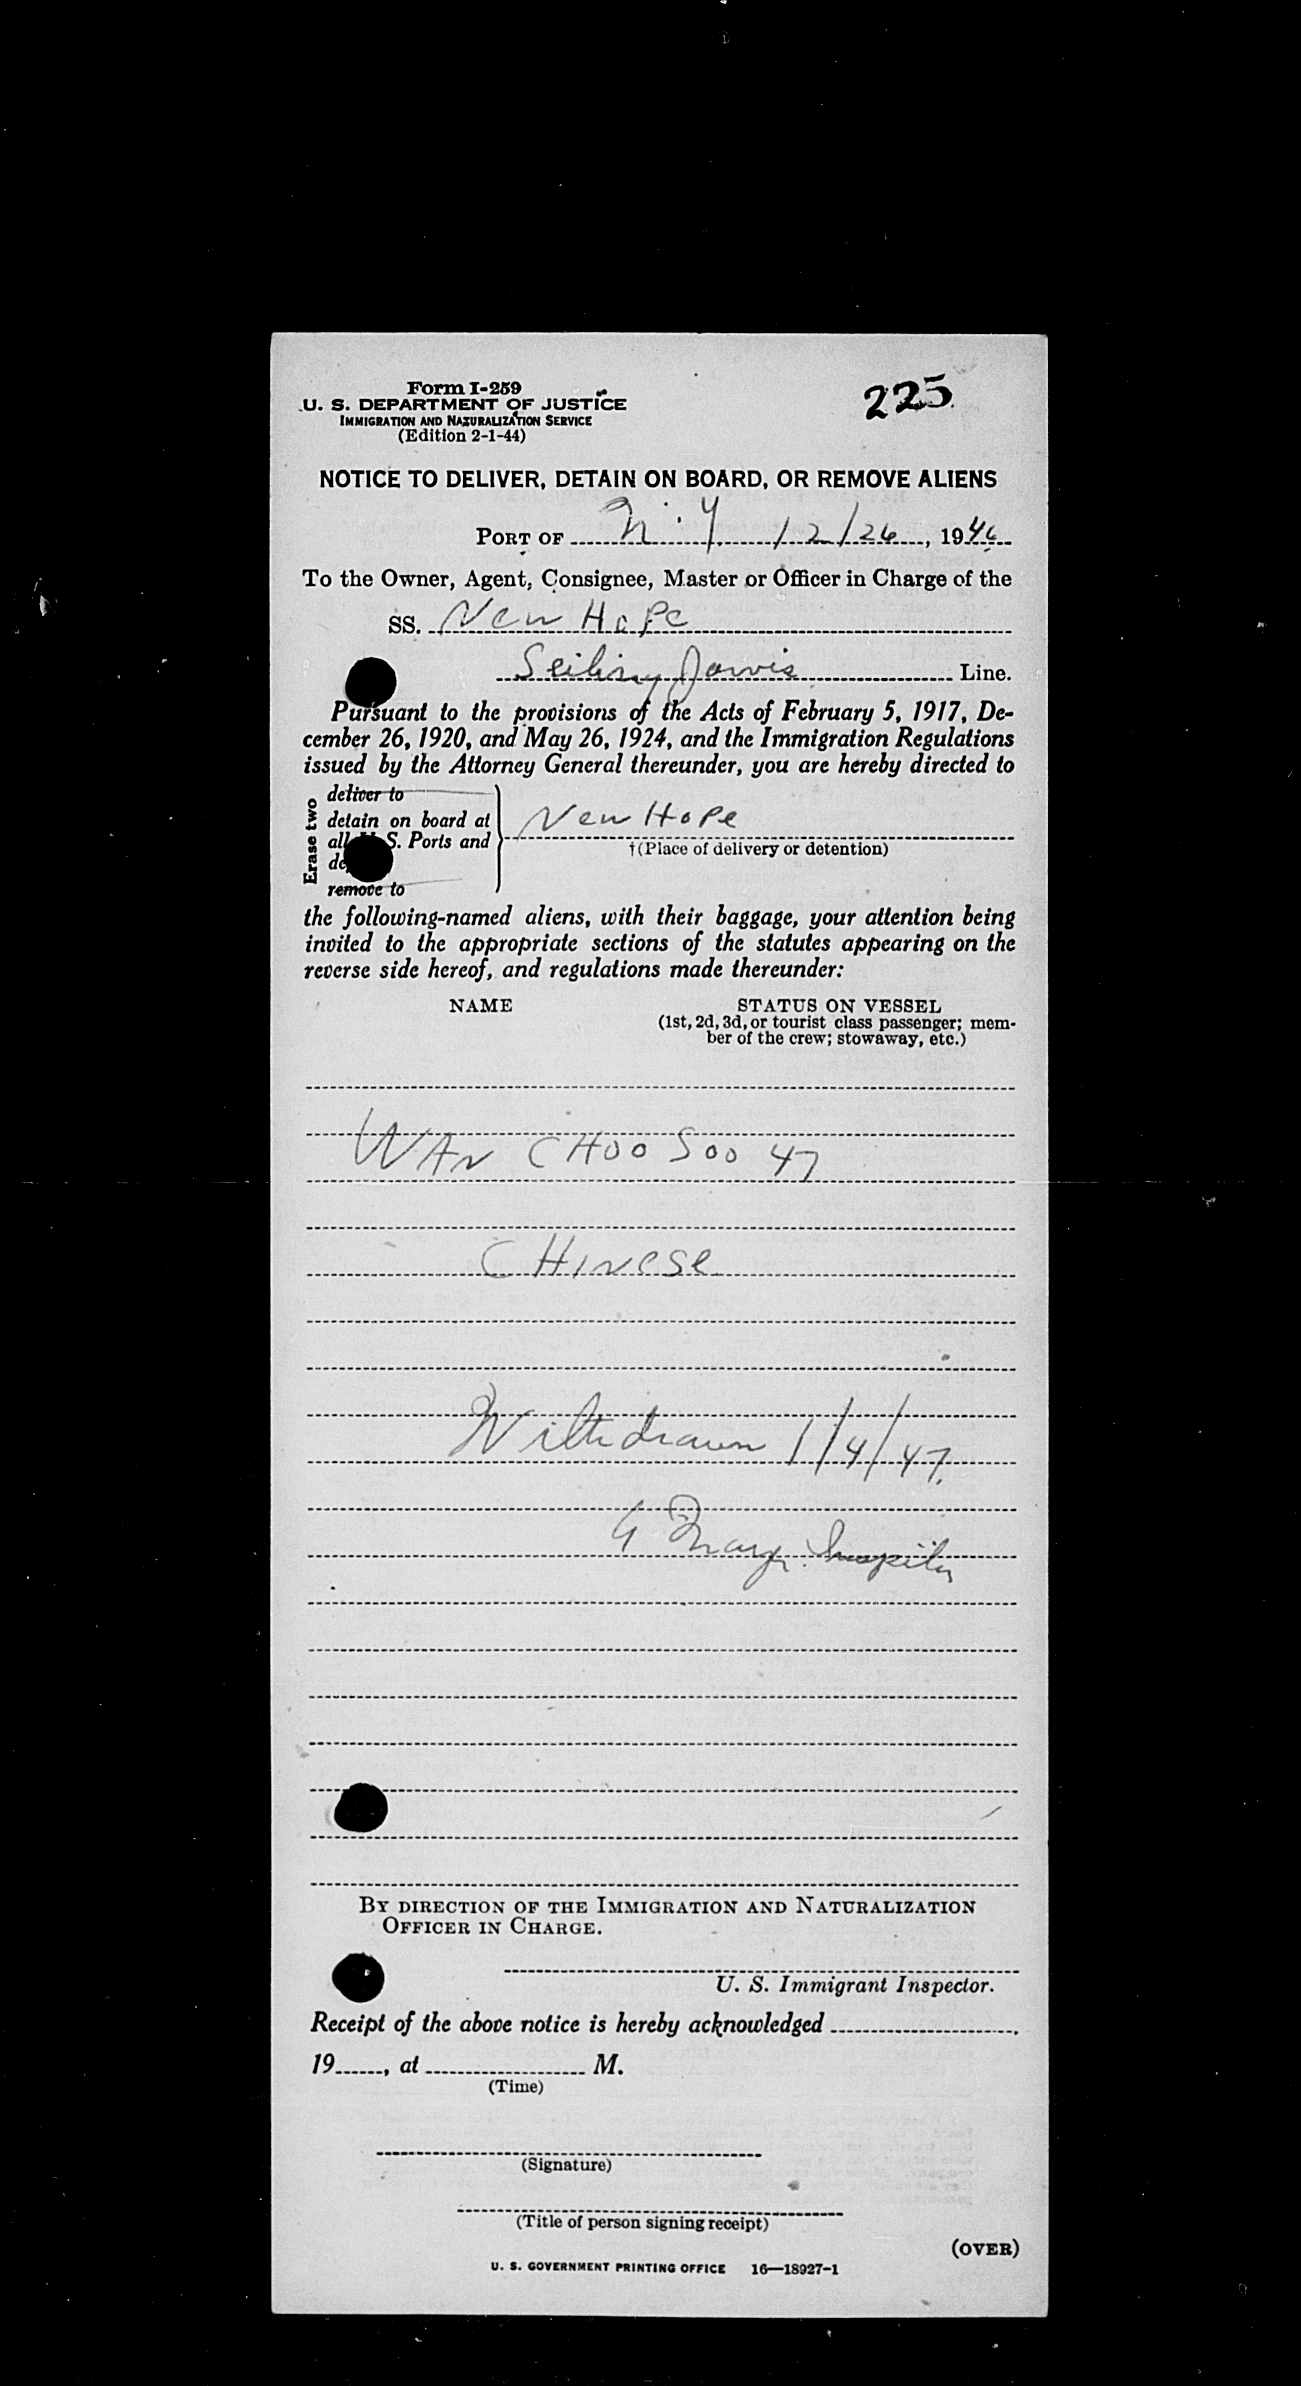 Form I-259
U. S. DEPARTMENT OF JUSTICE
IMMIGRATION AND NATURALIZATION SERVICE
(Edition 2-1-44)
225
NOTICE TO DELIVER, DETAIN ON BOARD, OR REMOVE ALIENS
PORT OF N.Y. 12/26, 1946
To the Owner, Agent, Consignee, Master or Officer in Charge of the
SS. New Hope
Jarvis Line.
Pursuant to the provisions of the Acts of February 5, 1917, De-
cember 26, 1920, and May 26, 1924, and the Immigration Regulations
issued by the Attorney General thereunder, you are hereby directed to
Erase two
deliver to
detain on board at
all U. S. Ports and
remove to
New Hope
†(Place of delivery or detention)
the following-named aliens, with their baggage, your attention being
invited to the appropriate sections of the statutes appearing on the
reverse side hereof, and regulations made thereunder:
NAME
STATUS ON VESSEL
(1st, 2d, 3d, or tourist class passenger; mem-
ber of the crew; stowaway, etc.)
WAN CHOO SOO 47
CHINESE
Withdrawn 1/4/47.
Inspector
BY DIRECTION OF THE IMMIGRATION AND NATURALIZATION
OFFICER IN CHARGE.
U. S. Immigrant Inspector.
Receipt of the above notice is hereby acknowledged
19, at M.
(Time)
(Signature)
(Title of person signing receipt)
(OVER)
U. S. GOVERNMENT PRINTING OFFICE 16—18927-1